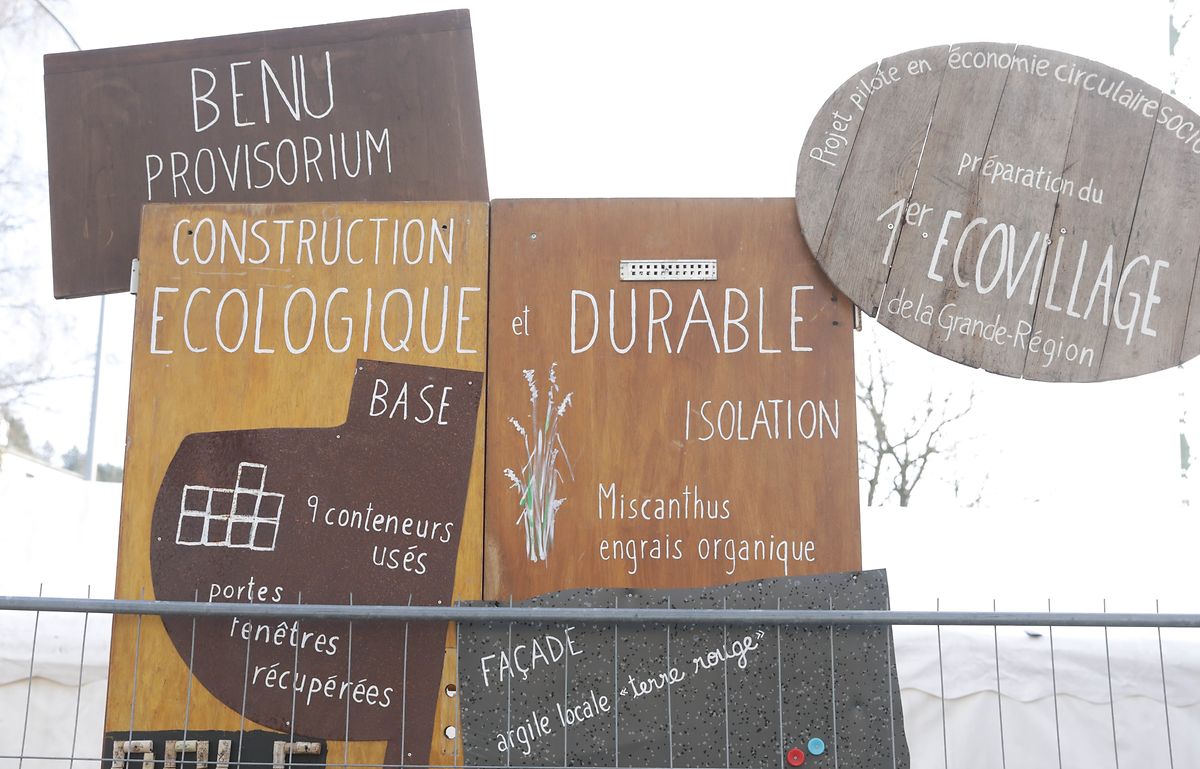 BENU
PROVISORIUM
CONSTRUCTION
ECOLOGIQUE
et DURABLE
BASE
9 conteneurs
usés
portes
fenêtres
récupérées
ISOLATION
Miscanthus
engrais organique
FAÇADE
argile locale «terre rouge»
Projet pilote en économie circulaire socio
préparation du
1er ECOVILLAGE
de la Grande-Région